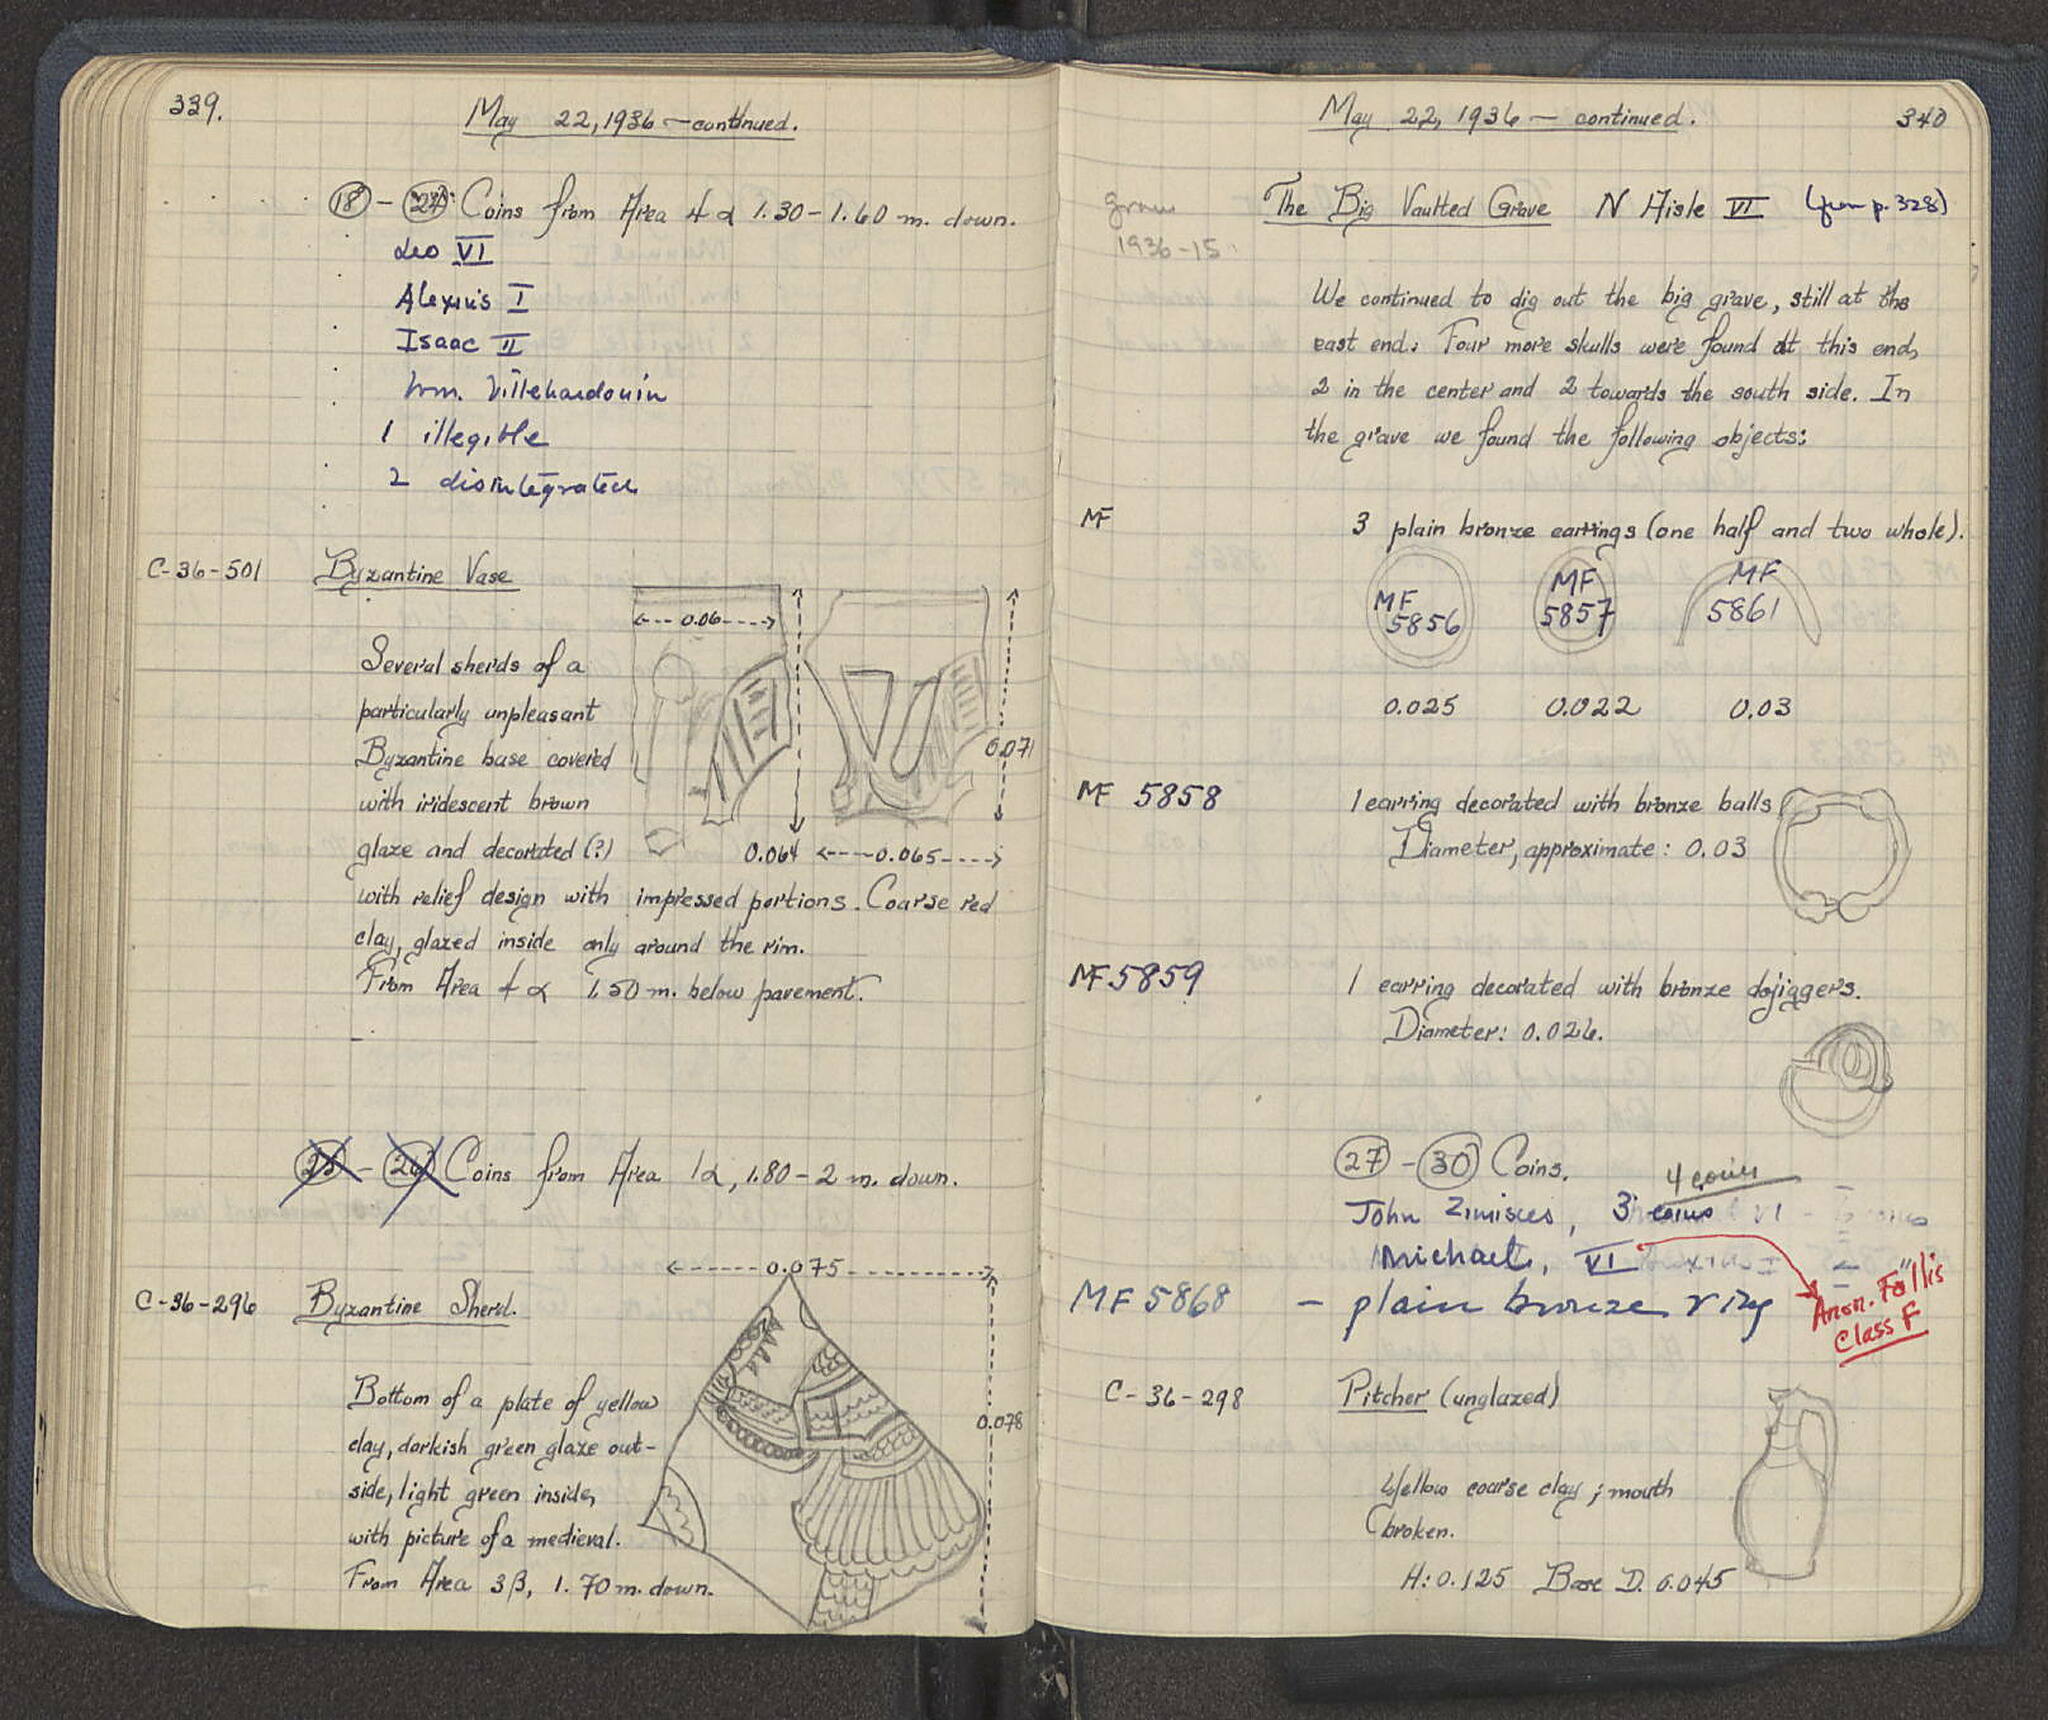 339.
May 22, 1936 — continued.
18 - 24: Coins from Area 4 α 1.30 - 1.60 m. down.
Leo VI
Alexius I
Isaac II
Wm. Villehardouin
1 illegible
2 disintegrated
C-36-501 Byzantine Vase
0.06
Several sherds of a
particularly unpleasant
Byzantine base covered
with iridescent brown
glaze and decorated (?)
0.071
0.064
0.065
with relief design with impressed portions. Coarse red
clay, glazed inside only around the rim.
From Area 4 α 1.50 m. below pavement.
25 - 26 Coins from Area 1α, 1.80 - 2 m. down.
0.075
C-36-296 Byzantine Sherd.
0.078
Bottom of a plate of yellow
clay, darkish green glaze out-
side, light green inside,
with picture of a medieval.
From Area 3β, 1.70 m. down.
May 22, 1936 — continued.
340
grave
1936-15
The Big Vaulted Grave N Aisle VI (from p. 328)
We continued to dig out the big grave, still at the
east end. Four more skulls were found at this end,
2 in the center and 2 towards the south side. In
the grave we found the following objects:
MF 3 plain bronze earrings (one half and two whole).
MF 5856 MF 5857 MF 5861
0.025 0.022 0.03
MF 5858 1 earring decorated with bronze balls
Diameter, approximate: 0.03
MF 5859 1 earring decorated with bronze dojiggers.
Diameter: 0.026.
27 - 30 Coins.
4 coins
John Zimisces, 3 coins
Michael, VI
Anon. Follis
Class F
MF 5868 - plain bronze ring
C-36-298 Pitcher (unglazed)
Yellow coarse clay; mouth
broken.
H: 0.125 Base D. 0.045